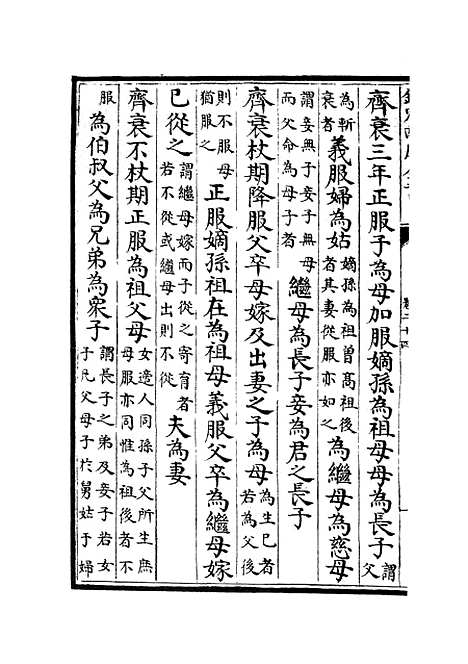 齊衰三年正服子為母加服嫡孫為祖母母為長子謂父
為斬衰者義服婦為姑嫡孫為祖曾高祖後者其妻從服亦如之為繼母為慈母
謂妾無子妾子無母而父命為母子者繼母為長子妾為君之長子
齊衰杖期降服父卒母嫁及出妻之子為母為生己者若為父後
則不服母猶服之正服嫡孫祖在為祖母義服父卒為繼母嫁
已從之謂繼母嫁而子從之寄育者若不從或繼母出則不從夫為妻
齊衰不杖期正服為祖父母女適人同孫子父所生庶母服亦同惟為祖後者不
服為伯叔父為兄弟為衆子謂長子之弟及妾子若女子凡父母子於舅姑于婦